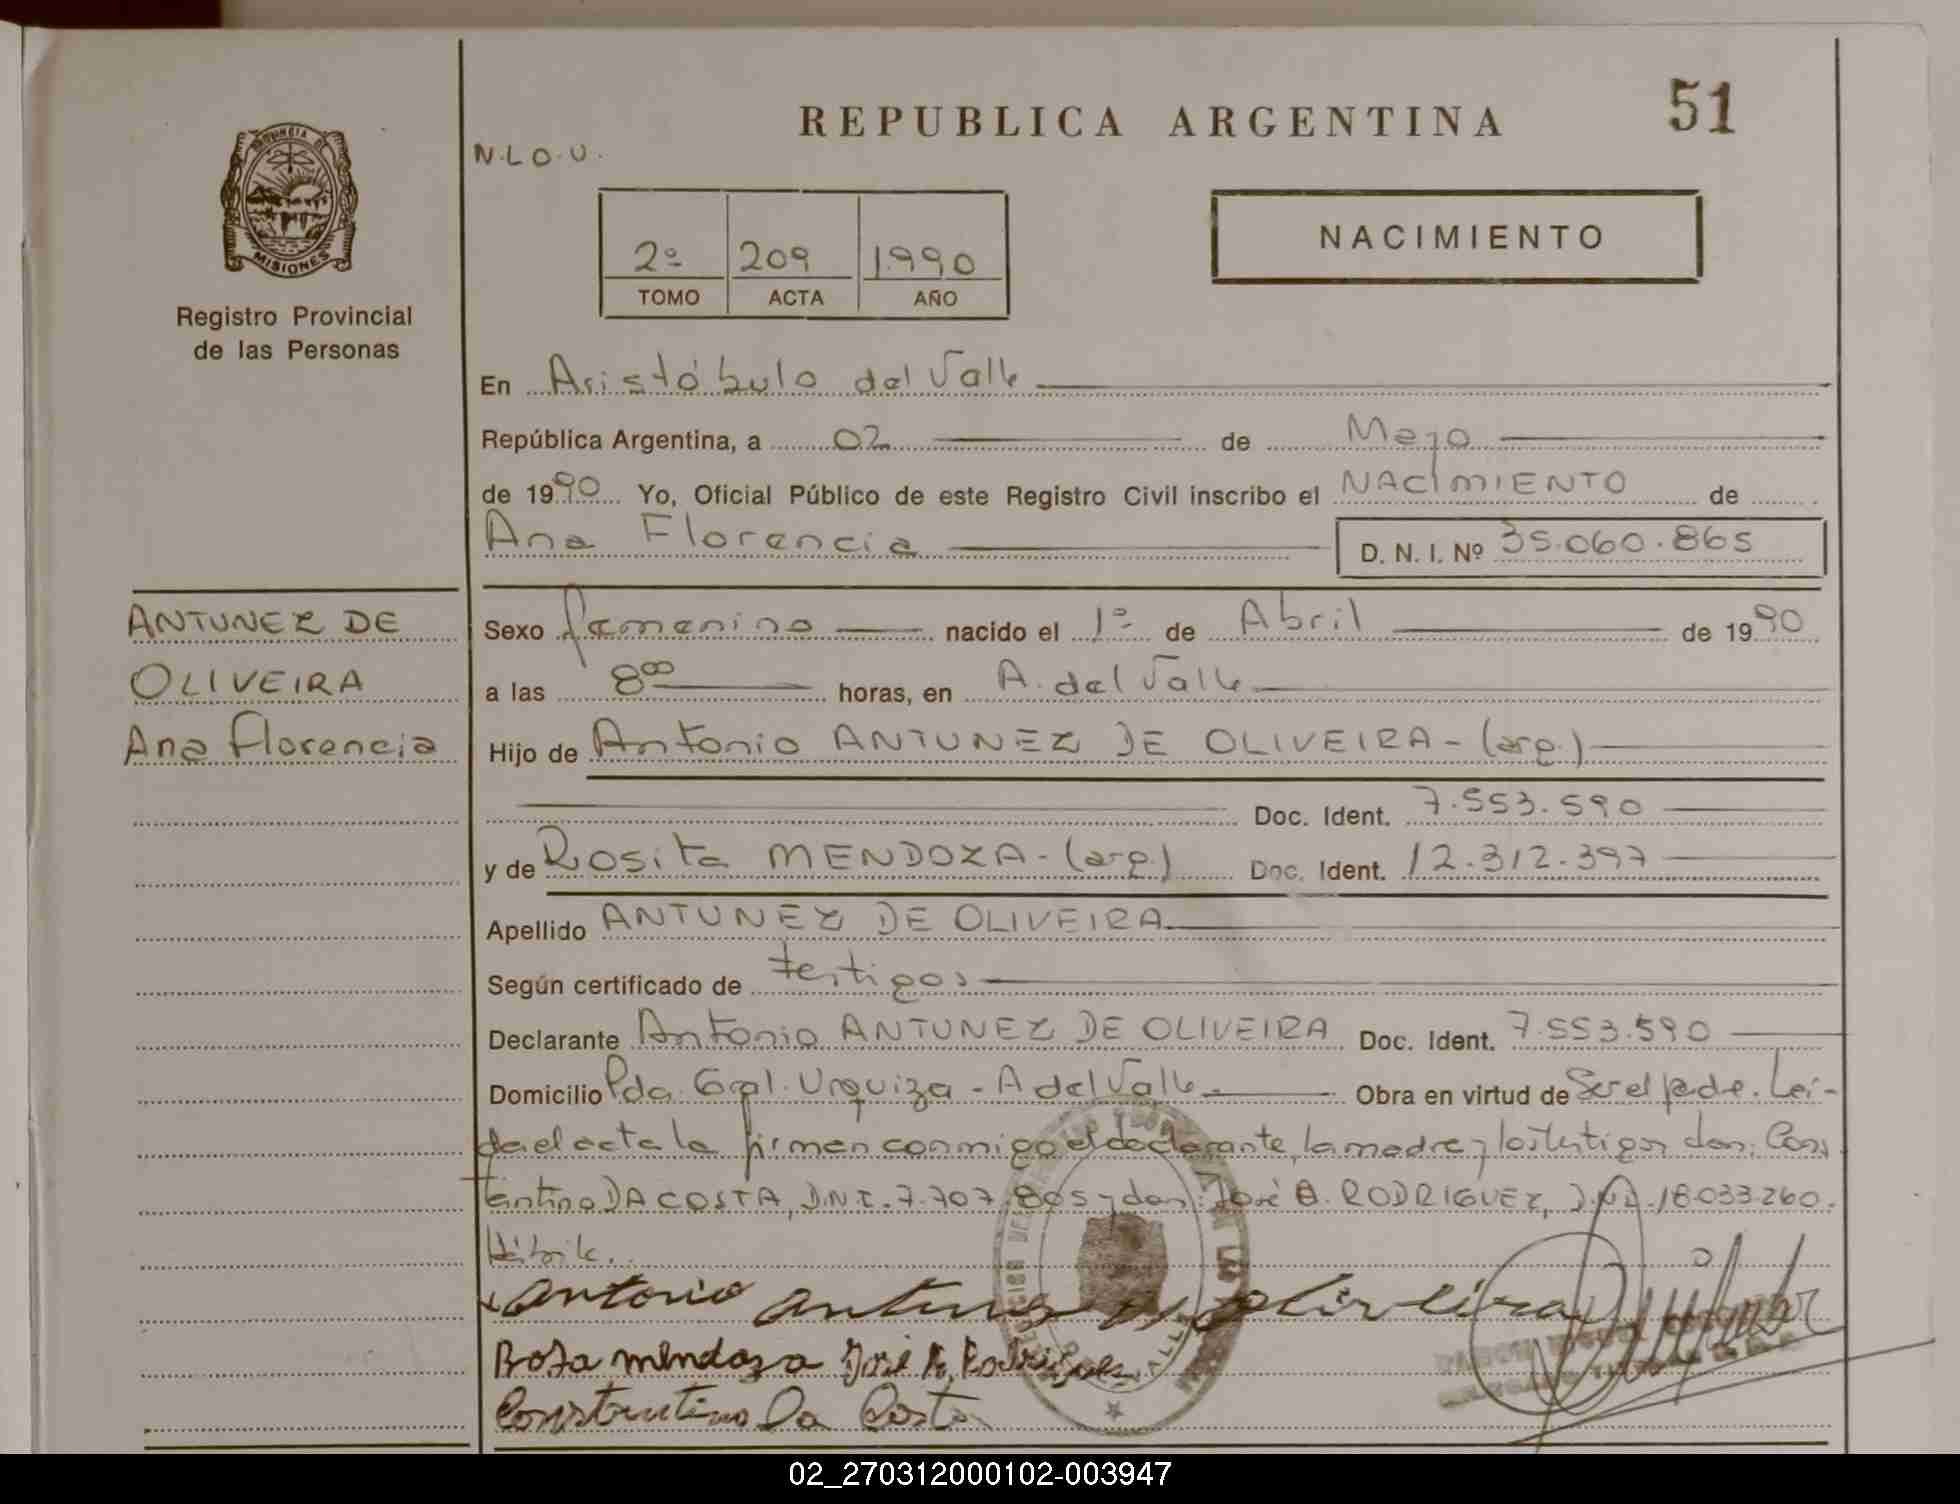 REPUBLICA ARGENTINA
51
PROVINCIA D
MISIONES
Registro Provincial
de las Personas
N.L.O.U.
2º 209 1990
TOMO ACTA AÑO
NACIMIENTO
En Aristóbulo del Valle
República Argentina, a 02 de Mayo
de 1990 Yo, Oficial Público de este Registro Civil inscribo el NACIMIENTO de
Ana Florencia D. N. I. Nº 35.060.865
ANTUNEZ DE
OLIVEIRA
Ana Florencia
Sexo femenino nacido el 1º de Abril de 1990
a las 8 00 horas, en A. del Valle
Hijo de Antonio ANTUNEZ DE OLIVEIRA - (arg.)
Doc. Ident. 7.553.590
y de Rosita MENDOZA - (arg.) Doc. Ident. 12.312.397
Apellido ANTUNEZ DE OLIVEIRA
Según certificado de testigos
Declarante Antonio ANTUNEZ DE OLIVEIRA Doc. Ident. 7.553.590
Domicilio Pda. Gral. Urquiza - A del Valle Obra en virtud de Ser el padre. Leí-
da el acta la firman conmigo el declarante, la madre y los testigos don: Cons
tantino DA COSTA, D.N.I. 7.707.805 y don: José A. RODRIGUEZ, D.N.I. 18.033.260.
Antonio Antunez de oliveira
Rosa mendoza José A. Rodriguez
Constantino Da Costa
02_270312000102-003947